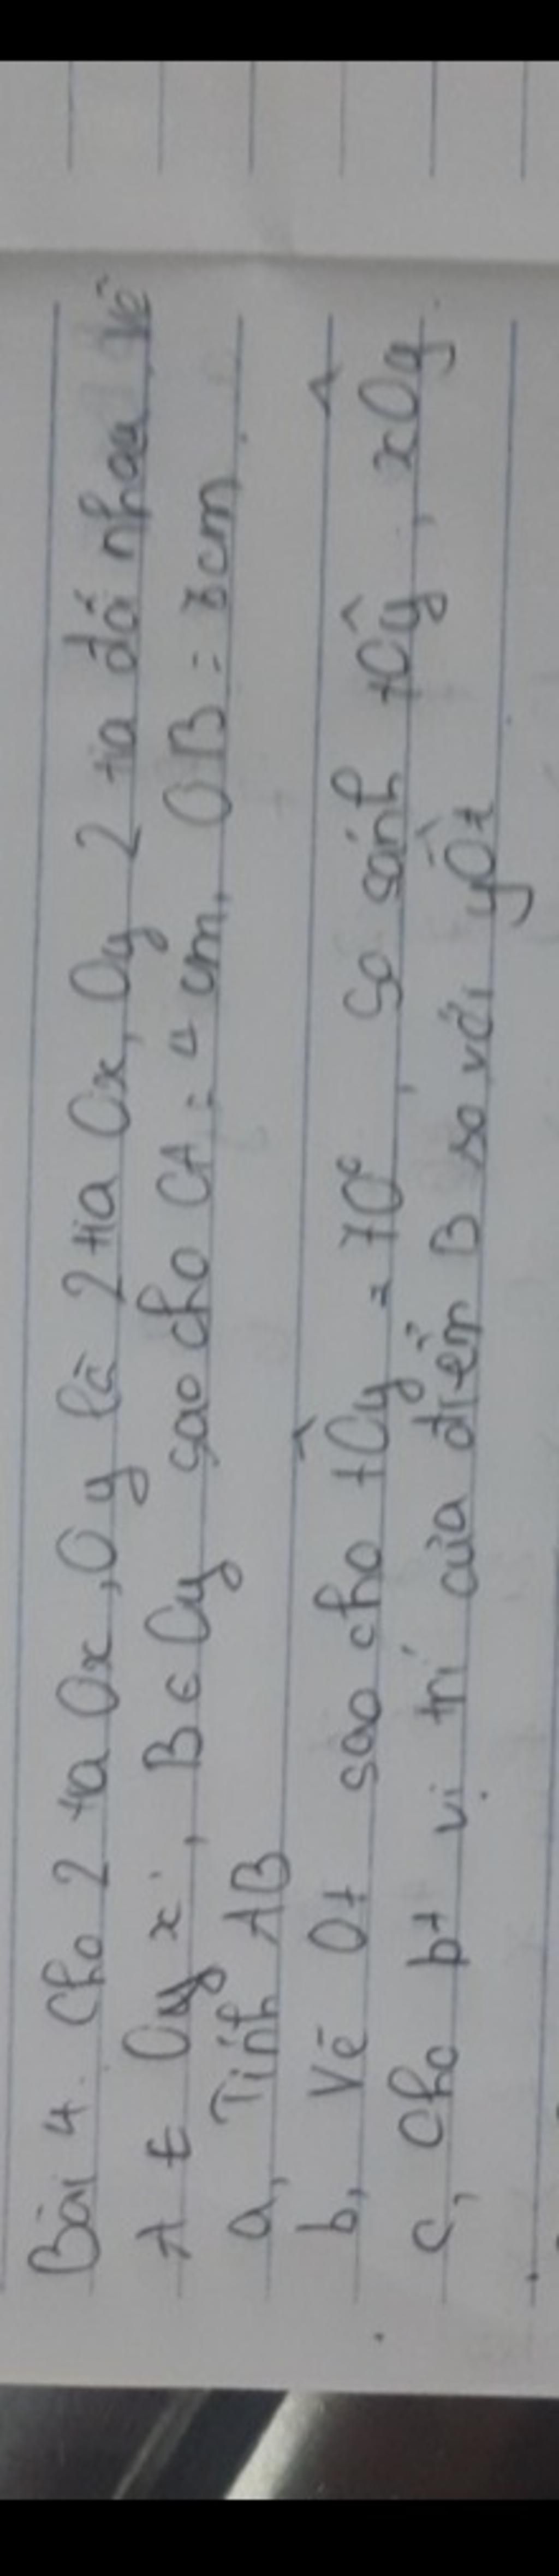 Bài 4. Cho 2 tia Ox, Oy là 2 tia Ox, Oy 2 tia đối nhau, vẽ
A ∈ Oy x, B ∈ Oy sao cho OA = 4 cm, OB = 3 cm.
a, Tính AB
b, Vẽ Ot sao cho tOy = 70°, so sánh tOy, xOy.
c, Cho bt vị trí của điểm B so với yOt